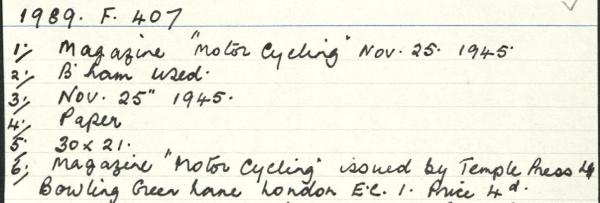 1989. F. 407
1. Magazine "Motor Cycling" Nov. 25. 1945.
2. B'ham used.
3. Nov. 25" 1945.
4. Paper
5. 30 x 21.
6. Magazine "Motor Cycling" issued by Temple Press Ld
Bowling Green Lane London E.C. 1. Price 4d.